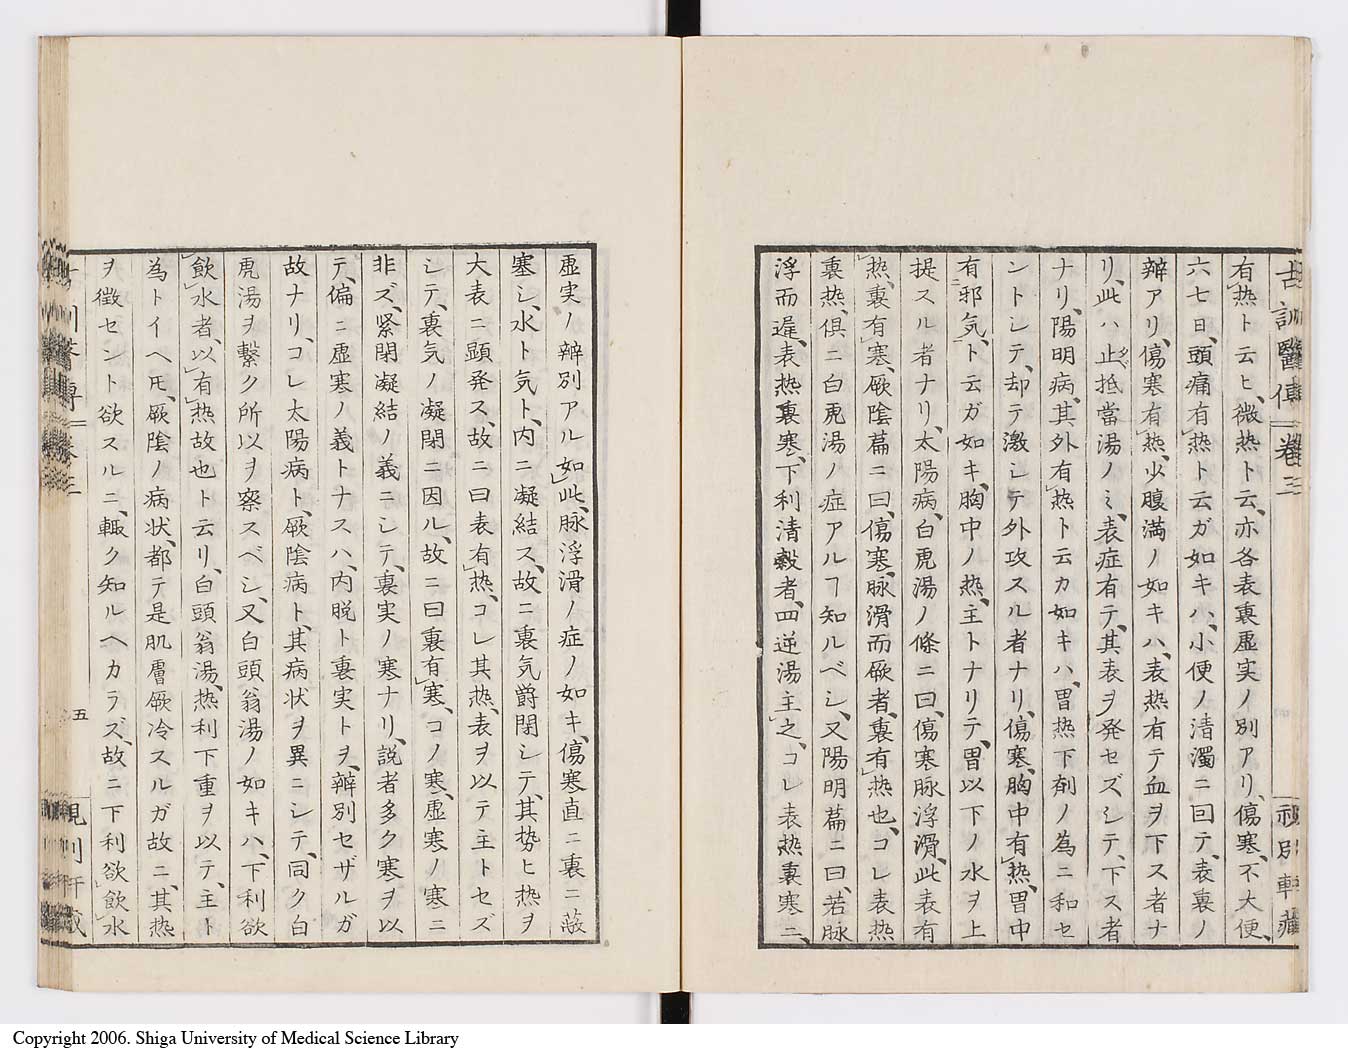 古訓醫傳 卷三
有熱ト云ヒ、微熱ト云、亦各表裏虚実ノ別アリ、傷寒、不大便、
六七日、頭痛有熱ト云ガ如キハ、小便ノ清濁ニ回テ、表裏ノ
辨アリ、傷寒有熱、少腹満ノ如キハ、表熱有テ血ヲ下ス者ナ
リ、此ハ止抵當湯ノミ、表症有テ、其表ヲ発セズシテ、下ス者
ナリ、陽明病、其外有熱ト云カ如キハ、胃熱下剤ノ為ニ和セ
ントシテ、却テ激シテ外攻スル者ナリ、傷寒、胸中有熱、胃中
有邪気、ト云ガ如キ、胸中ノ熱、主トナリテ、胃以下ノ水ヲ上
提スル者ナリ、太陽病、白虎湯ノ條ニ曰、傷寒脉浮滑、此表有
熱、裏有寒、厥陰篇ニ曰、傷寒、脉滑而厥者、裏有熱也、コレ表熱
裏熱、俱ニ白虎湯ノ症アルヿ知ルベシ、又陽明篇ニ曰、若脉
浮而遅、表熱裏寒、下利清穀者、四逆湯主之、コレ表熱裏寒ニ、
虚実ノ辨別アル如此、脉浮滑ノ症ノ如キ、傷寒直ニ裏ニ蔽
塞シ、水ト気ト、内ニ凝結ス、故ニ裏気爵閉シテ、其勢ヒ熱ヲ
大表ニ顕発ス、故ニ曰表有熱、コレ其熱、表ヲ以テ主トセズ
シテ、裏気ノ凝閉ニ因ル、故ニ曰裏有寒、コノ寒、虚寒ノ寒ニ
非ズ、緊閉凝結ノ義ニシテ、裏実ノ寒ナリ、説者多ク寒ヲ以
テ、偏ニ虚寒ノ義トナスハ、内脱ト裏実トヲ、辨別セザルガ
故ナリ、コレ太陽病ト、厥陰病ト、其病状ヲ異ニシテ、同ク白
虎湯ヲ繫ク所以ヲ察スベシ、又白頭翁湯ノ如キハ、下利欲
飲水者、以有熱故也ト云リ、白頭翁湯、熱利下重ヲ以テ、主ト
為トイヘ𪜈、厥陰ノ病状、都テ是肌膚厥冷スルガ故ニ、其熱
ヲ徴セント欲スルニ、輙ク知ルヘカラズ、故ニ下利欲飲水
五